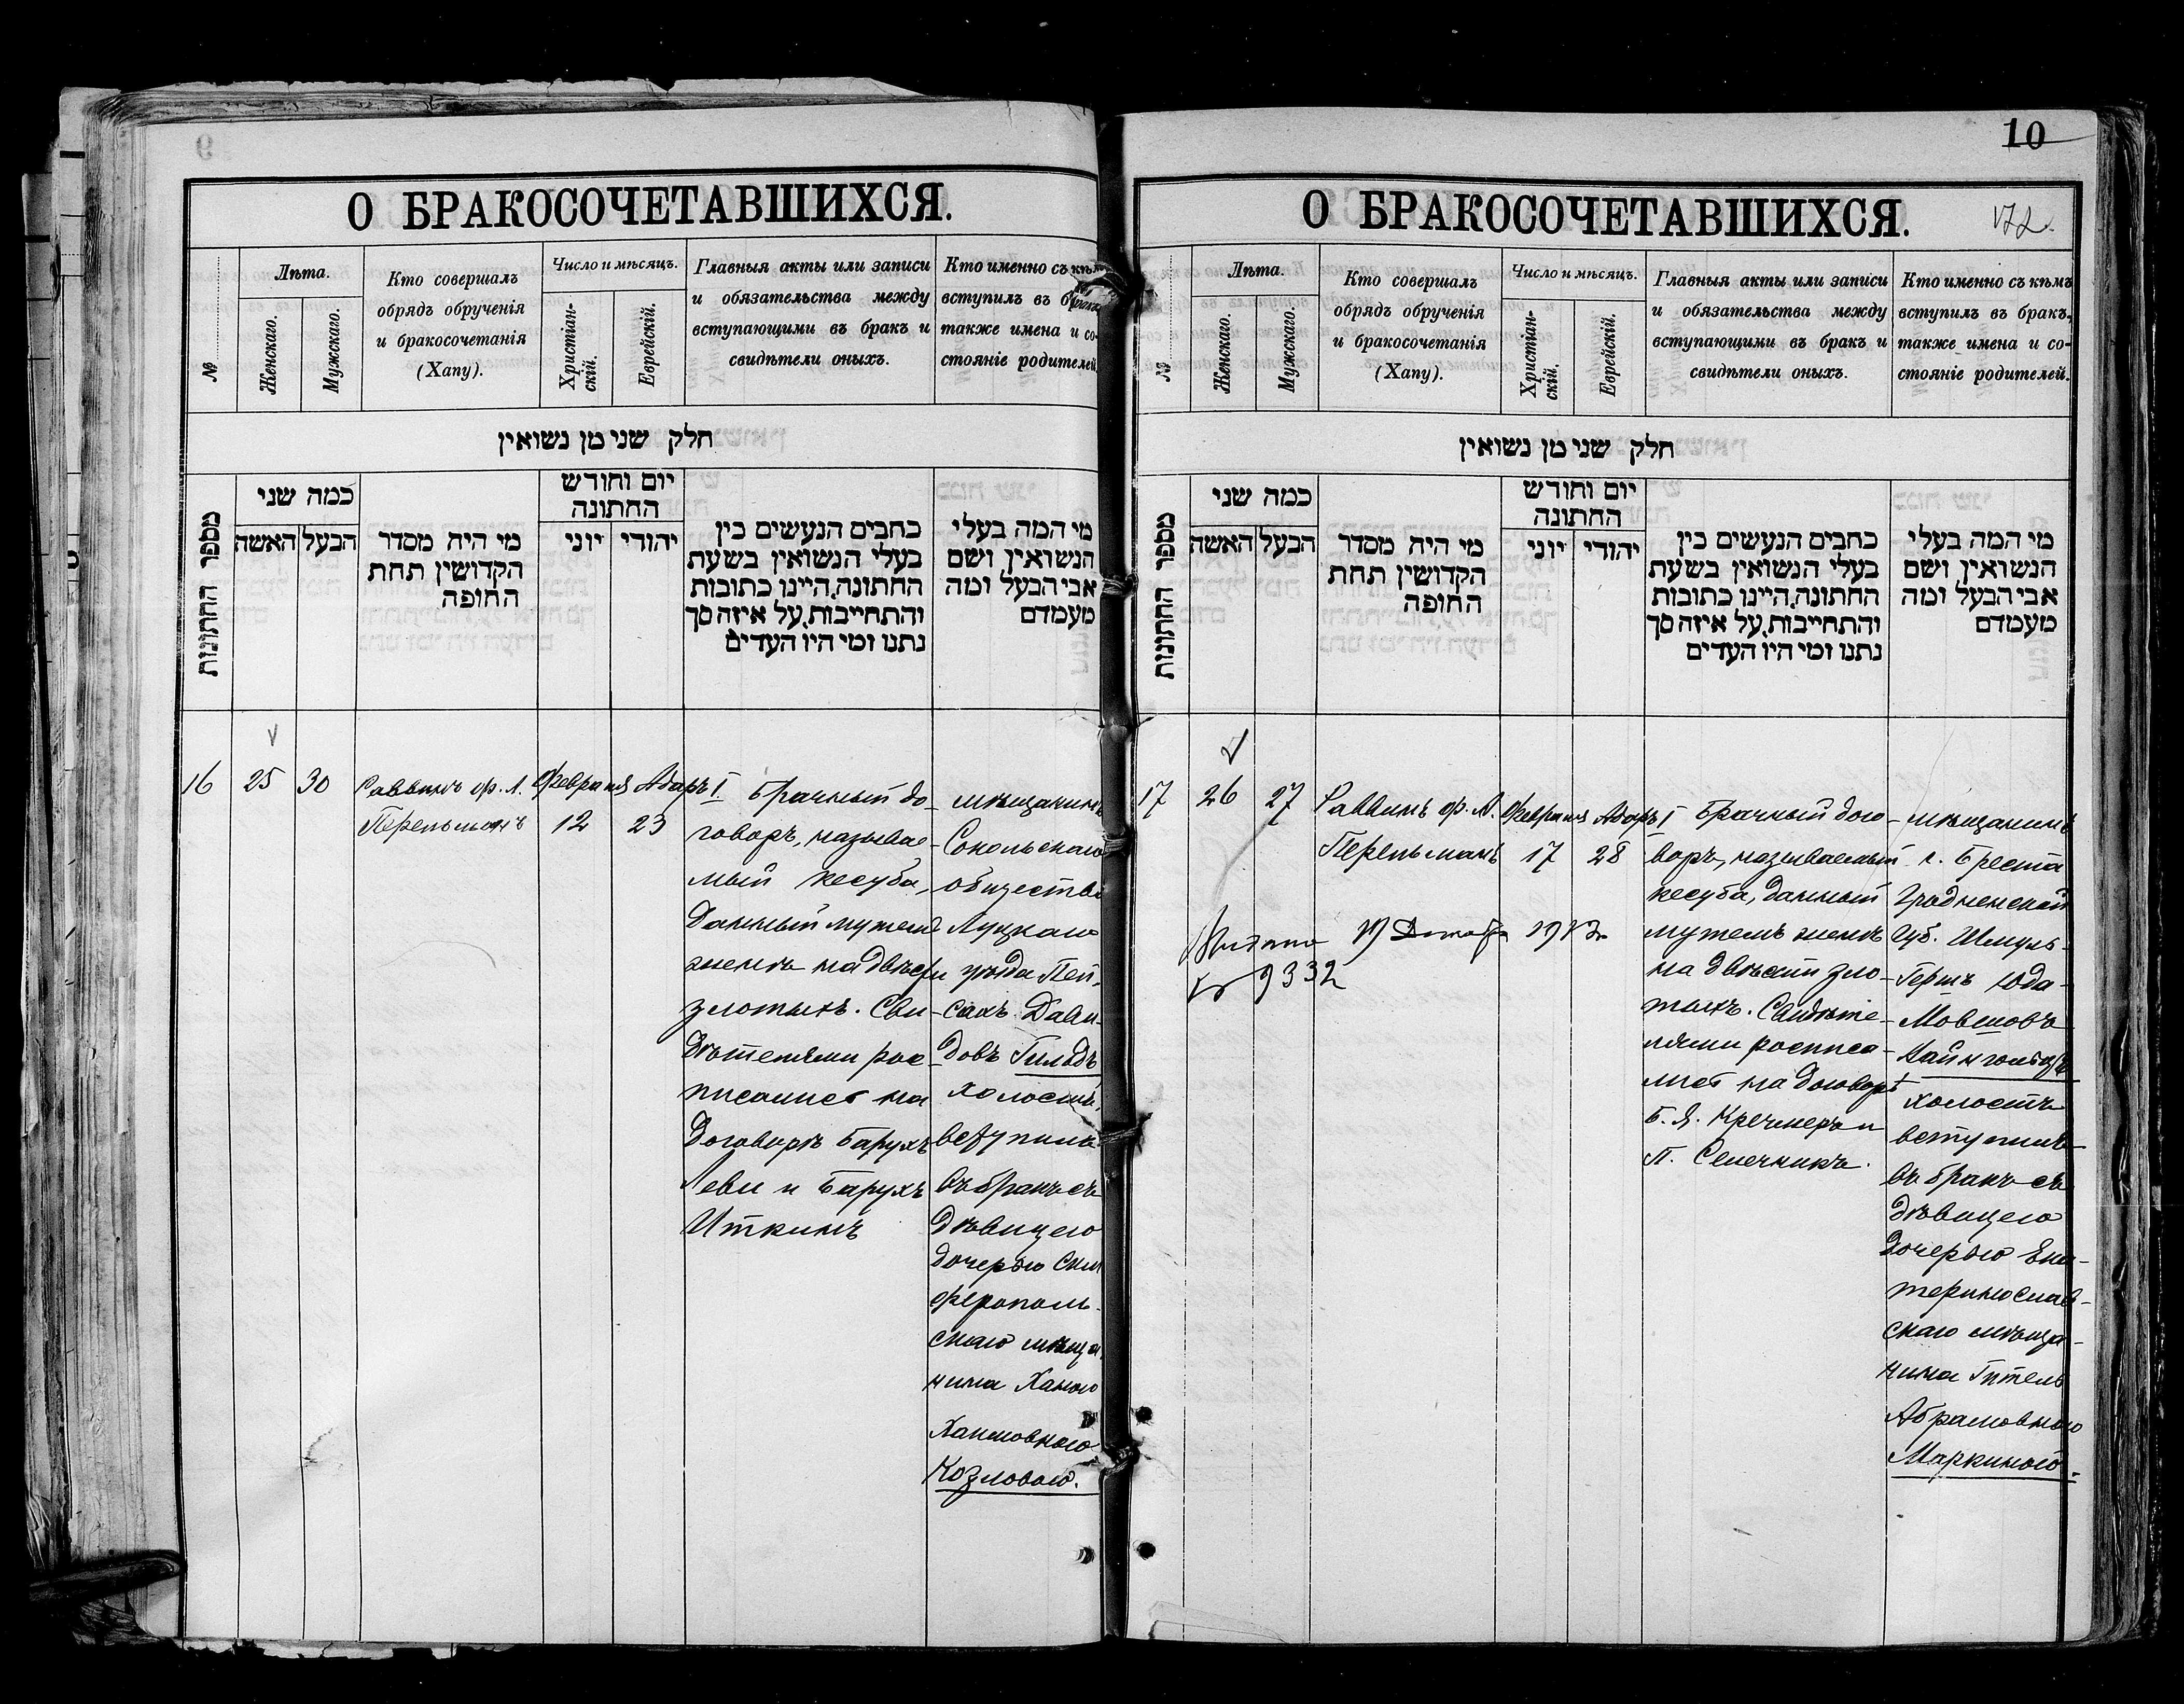 9
О БРАКОСОЧЕТАВШИХСЯ.
№
Лѣта.
Женскаго.
Мужскаго.
Кто совершалъ
обрядъ обрученія
и бракосочетанія
(Хапу).
Число и мѣсяцъ.
Христіан-
скій.
Еврейскій.
Главныя акты или записи
и обязательства между
вступающими въ бракъ и
свидѣтели оныхъ.
Кто именно съ кѣмъ
вступилъ въ бракъ,
также имена и со-
стояніе родителей.
חלק שני מן נשואין
מספר החתונות
כמה שני
הבעל האשה
מי היה מסדר
הקדושין תחת
החופה
יום וחודש
החתונה
יהודי יוני
כתבים הנעשים בין
בעלי הנשואין בשעת
החתונה, היינו כתובות
והתחייבות, על איזה סך
נתנו ומי היו העדים
מי המה בעלי
הנשואין ושם
אבי הבעל ומה
מעמדם
16
25
30
Раввинъ Ф. Л.
Перельманъ
Февраля
12
Адаръ I
23
Брачный до-
говоръ, называе-
мый кесуба,
данный мужемъ
женѣ на двѣсти
злотыхъ. Сви-
дѣтелями рос-
писались на
договорѣ Барухъ
Леви и Барухъ
Иткинъ
мѣщанинъ
Сокольскаго
общества
Луцкаго
уѣзда Пей-
сахъ Дави-
довъ Гильдъ
холостъ,
вступилъ
въ бракъ съ
дѣвицею
дочерью Сим
ферополь-
скаго мѣща
нина Ханою
Хаимовною
Козловою.
10
О БРАКОСОЧЕТАВШИХСЯ.
172.
№
Лѣта.
Женскаго.
Мужскаго.
Кто совершалъ
обрядъ обрученія
и бракосочетанія
(Хапу).
Число и мѣсяцъ.
Христіан-
скій.
Еврейскій.
Главныя акты или записи
и обязательства между
вступающими въ бракъ и
свидѣтели оныхъ.
Кто именно съ кѣмъ
вступилъ въ бракъ,
также имена и со-
стояніе родителей.
חלק שני מן נשואין
מספר החתונות
כמה שני
הבעל האשה
מי היה מסדר
הקדושין תחת
החופה
יום וחודש
החתונה
יהודי יוני
כתבים הנעשים בין
בעלי הנשואין בשעת
החתונה, היינו כתובות
והתחייבות, על איזה סך
נתנו ומי היו העדים
מי המה בעלי
הנשואין ושם
אבי הבעל ומה
מעמדם
17
26
27
Раввинъ Ф. Л.
Перельманъ
Февраля
17
Адаръ I
28
9332
Брачный дого-
воръ, называемый
кесуба, данный
мужемъ женѣ
на двѣсти зло-
тыхъ. Свидѣте-
лями росписа-
лись на договорѣ
Б. Я. Кречмеръ и
П. Селечникъ.
мѣщанинъ
г. Бреста
Гродненской
губ. Шмуль-
Гершъ Юда-
Мовшовъ
Вайнгольцъ
холостъ
вступилъ
въ бракъ съ
дѣвицею
дочерью Ека-
теринослав-
скаго мѣща-
нина Гитель
Абрамовною
Маркиною.